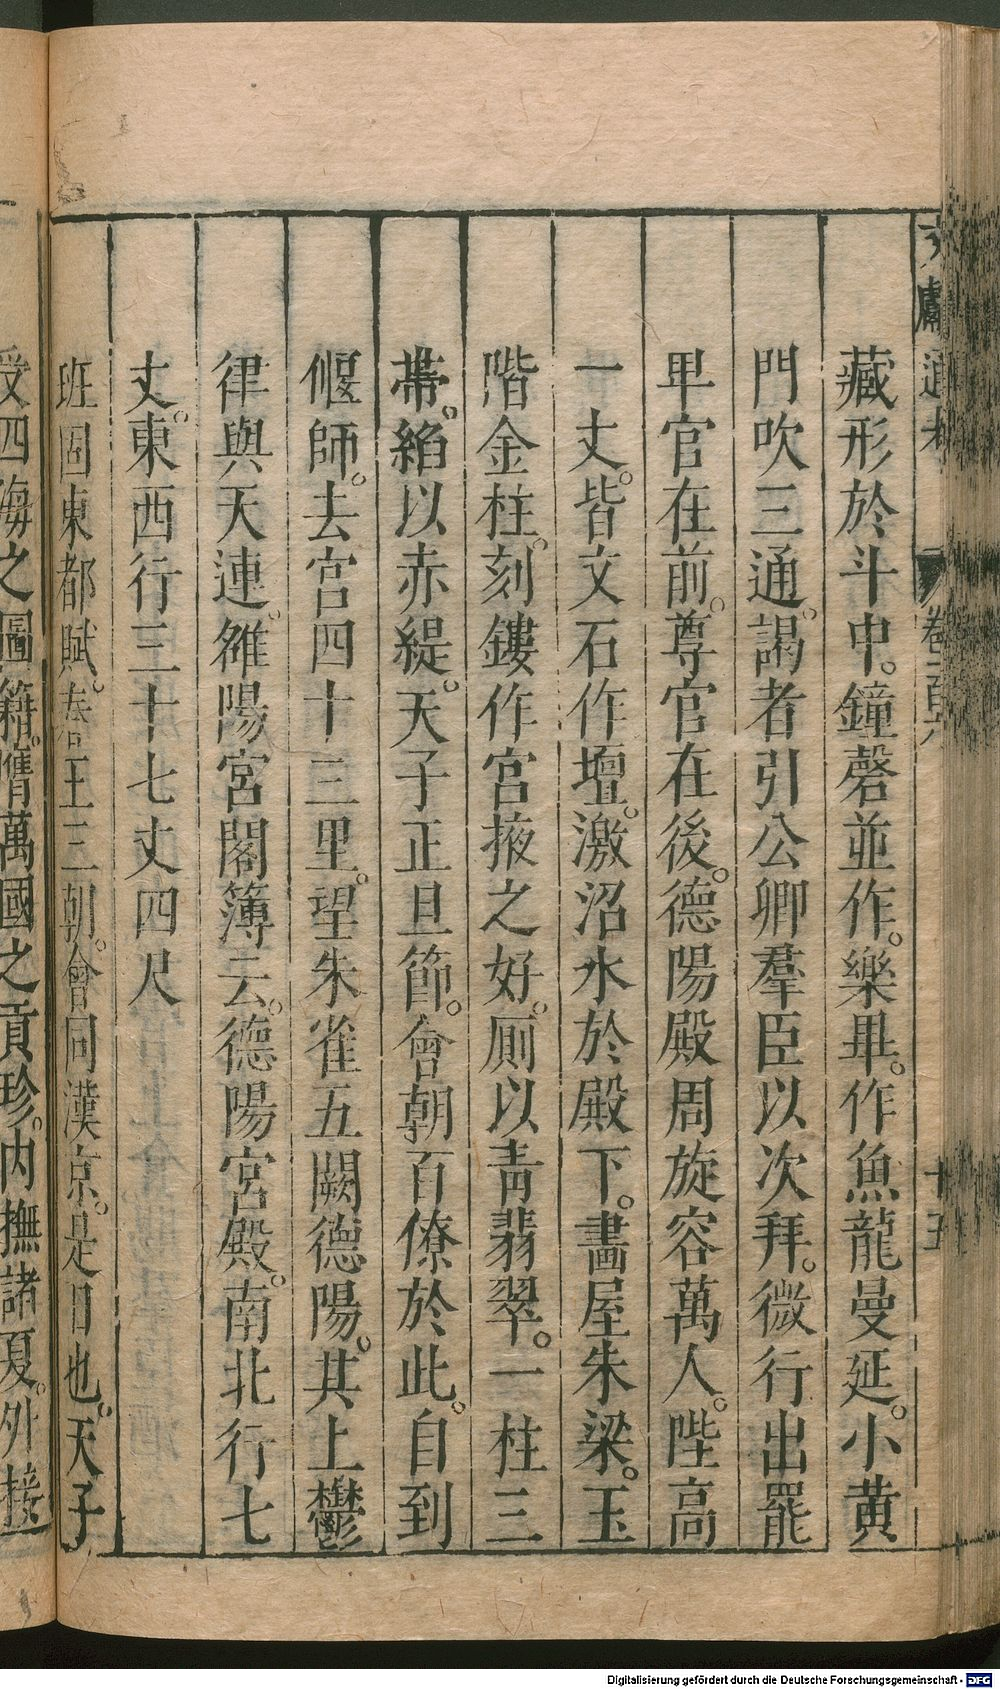 文獻通考 卷一百六 十五
藏形於斗中。鐘磬並作。樂畢。作魚龍曼延。小黃
門吹三通。謁者引公卿羣臣以次拜。微行出罷
卑官在前。尊官在後。德陽殿周旋容萬人。陛高
一丈。皆文石作壇。激沼水於殿下。畵屋朱梁。玉
階金柱。刻鏤作宮掖之好。厠以靑翡翠。一柱三
帶。縚以赤緹。天子正旦節。會朝百僚於此。自到
偃師。去宮四十三里。望朱雀五闕德陽。其上鬱
律與天連。雒陽宮閣簿云。德陽宮殿。南北行七
丈。東西行三十七丈四尺
班固東都賦。春王三朝。會同漢京。是日也。天子
受四海之圖籍。膺萬國之貢珍。內撫諸夏。外接
Digitalisierung gefördert durch die Deutsche Forschungsgemeinschaft - DFG